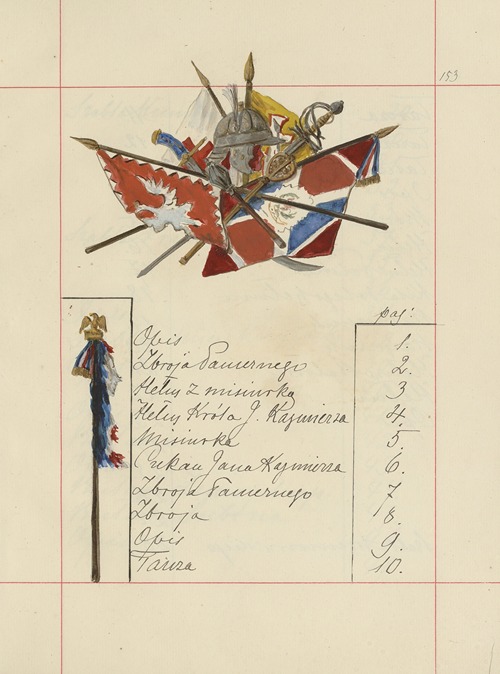 153
pag:
Opis 1.
Zbroja Pancernego 2.
Hełm z misiurką 3
Hełm Króla J. Kazimierza 4.
Misiurka 5.
Jana Kazimierza 6.
Zbroja Pancernego 7
Zbroja 8.
Opis 9.
Tarcza 10.